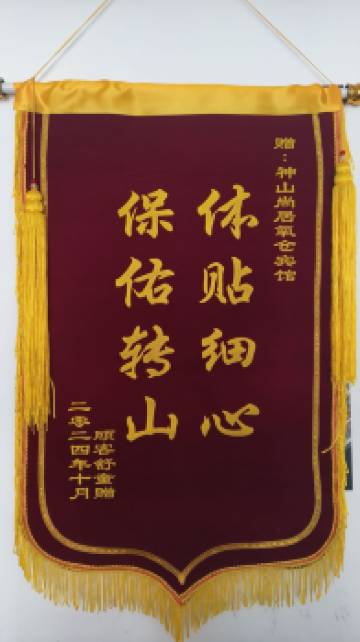 赠：神山尚居氧仓宾馆
体贴细心
保佑转山
顾客舒童赠
二零二四年十月